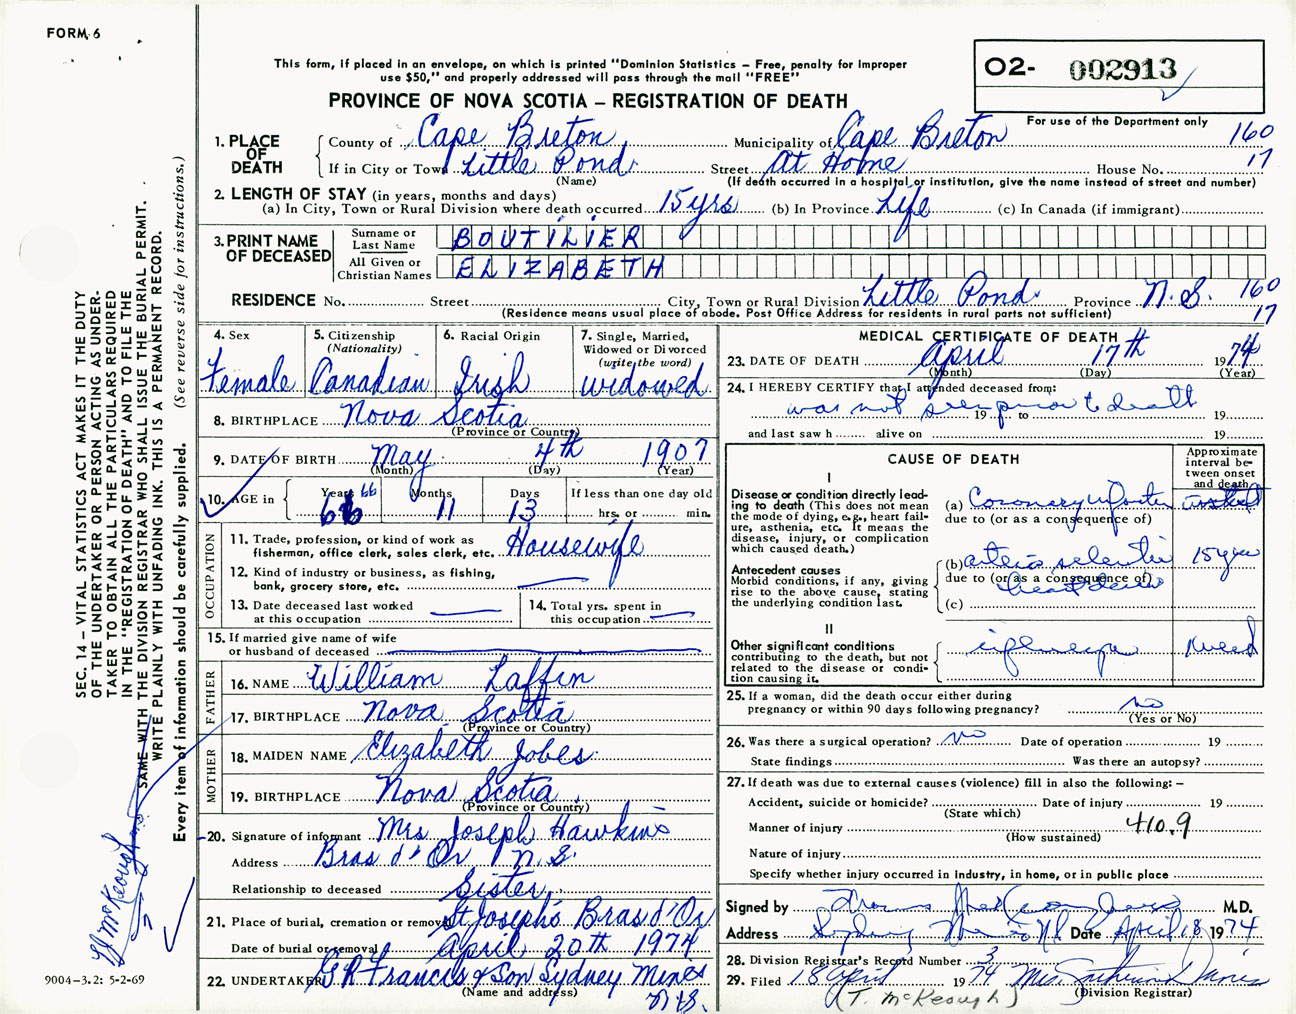 FORM 6
This form, if placed in an envelope, on which is printed "Dominion Statistics – Free, penalty for improper
use $50," and properly addressed will pass through the mail "FREE"
PROVINCE OF NOVA SCOTIA – REGISTRATION OF DEATH
O2- 002913
For use of the Department only
1. PLACE OF DEATH
County of Cape Breton Municipality of Cape Breton 160
If in City or Town Little Pond Street At Home House No. 17
(Name) (If death occurred in a hospital or institution, give the name instead of street and number)
2. LENGTH OF STAY (in years, months and days)
(a) In City, Town or Rural Division where death occurred 15 yrs (b) In Province Life (c) In Canada (if immigrant)
3. PRINT NAME OF DECEASED
Surname or Last Name BOUTILIER
All Given or Christian Names ELIZABETH
RESIDENCE No. Street City, Town or Rural Division Little Pond Province N.S. 160
(Residence means usual place of abode. Post Office Address for residents in rural parts not sufficient) 17
4. Sex
Female
5. Citizenship
(Nationality)
Canadian
6. Racial Origin
Irish
7. Single, Married,
Widowed or Divorced
(write the word)
widowed
8. BIRTHPLACE Nova Scotia
(Province or Country)
9. DATE OF BIRTH May 4th 1907
(Month) (Day) (Year)
10. AGE in
Years 66 66
Months 11
Days 13
If less than one day old
hrs. or min.
OCCUPATION
11. Trade, profession, or kind of work as
fisherman, office clerk, sales clerk, etc. Housewife
12. Kind of industry or business, as fishing,
bank, grocery store, etc.
13. Date deceased last worked
at this occupation
14. Total yrs. spent in
this occupation
15. If married give name of wife
or husband of deceased
FATHER
16. NAME William Laffin
17. BIRTHPLACE Nova Scotia
(Province or Country)
MOTHER
18. MAIDEN NAME Elizabeth Jobes
19. BIRTHPLACE Nova Scotia
(Province or Country)
20. Signature of informant Mrs Joseph Hawkins
Address Bras d'Or N.S.
Relationship to deceased Sister
21. Place of burial, cremation or removal St Joseph's Bras d'Or
Date of burial or removal April 20th 1974
22. UNDERTAKER G R Francis & Son Sydney Mines
(Name and address) N.S.
MEDICAL CERTIFICATE OF DEATH
23. DATE OF DEATH April 17th 1974
(Month) (Day) (Year)
24. I HEREBY CERTIFY that I attended deceased from:
was not seen prior to death 19 to 19
and last saw h alive on 19
CAUSE OF DEATH
Approximate
interval be-
tween onset
and death
I
Disease or condition directly lead-
ing to death (This does not mean
the mode of dying, e.g., heart fail-
ure, asthenia, etc. It means the
disease, injury, or complication
which caused death.)
(a) Coronary
due to (or as a consequence of)
Antecedent causes
Morbid conditions, if any, giving
rise to the above cause, stating
the underlying condition last.
(b) 15 years
due to (or as a consequence of)
heart disease
(c)
II
Other significant conditions
contributing to the death, but not
related to the disease or condi-
tion causing it.
25. If a woman, did the death occur either during
pregnancy or within 90 days following pregnancy? no
(Yes or No)
26. Was there a surgical operation? no Date of operation 19
State findings Was there an autopsy?
27. If death was due to external causes (violence) fill in also the following: –
Accident, suicide or homicide? Date of injury 19
(State which)
Manner of injury 410.9
(How sustained)
Nature of injury
Specify whether injury occurred in industry, in home, or in public place
Signed by Thomas M.D.
Address Sydney Mines N.S. Date April 18 1974
28. Division Registrar's Record Number 3
29. Filed 18 April 1974 Mrs. Davis
(Division Registrar)
(T. McKeough)
SEC. 14 – VITAL STATISTICS ACT MAKES IT THE DUTY
OF THE UNDERTAKER OR PERSON ACTING AS UNDER-
TAKER TO OBTAIN ALL THE PARTICULARS REQUIRED
IN THE "REGISTRATION OF DEATH" AND TO FILE THE
SAME WITH THE DIVISION REGISTRAR WHO SHALL ISSUE THE BURIAL PERMIT.
WRITE PLAINLY WITH UNFADING INK. THIS IS A PERMANENT RECORD.
Every item of information should be carefully supplied. (See reverse side for instructions.)
McKeough
9004-3.2: 5-2-69